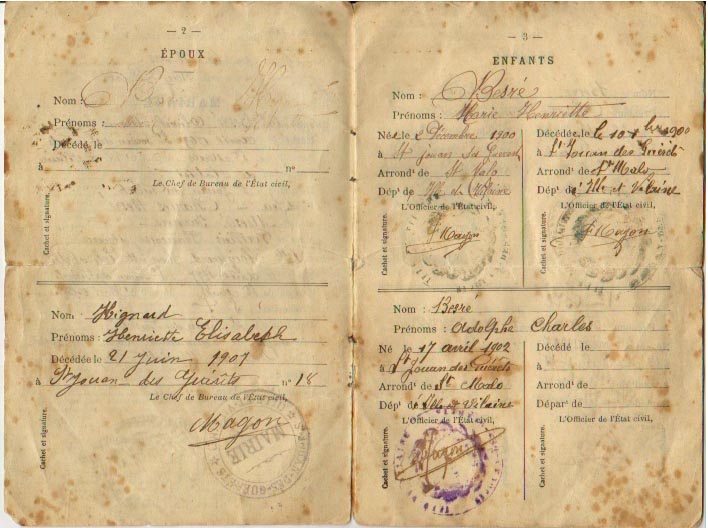 — 2 —
ÉPOUX
Nom :
Prénoms :
Décédé le
à n°
Le Chef de Bureau de l'État civil,
Cachet et signature.
Nom : Hignard
Prénoms : Henriette Elisabeth
Décédée le 21 juin 1907
à St Jouan des Guérets n° 18
Le Chef de Bureau de l'État civil,
Magon
Cachet et signature.
MAIRIE
— 3 —
ENFANTS
Nom : Besré
Prénoms : Marie Henriette
Née le 2 Décembre 1900
à St Jouan des Guérets
Arrondt de St Malo
Dépt de Ille et Vilaine
L'Officier de l'État civil,
Magon
Cachet et signature.
Décédée le 10 1900
à St Jouan des Guérets
Arrondt de St Malo
Dépt d'Ille et Vilaine
L'Officier de l'État civil,
Magon
Cachet et signature.
Nom : Besré
Prénoms : Adolphe Charles
Né le 17 avril 1902
à St Jouan des Guérets
Arrondt de St Malo
Dépt d'Ille et Vilaine
L'Officier de l'État civil,
Magon
Cachet et signature.
Décédé le
à
Arrondt de
Départt de
L'Officier de l'État civil,
Cachet et signature.